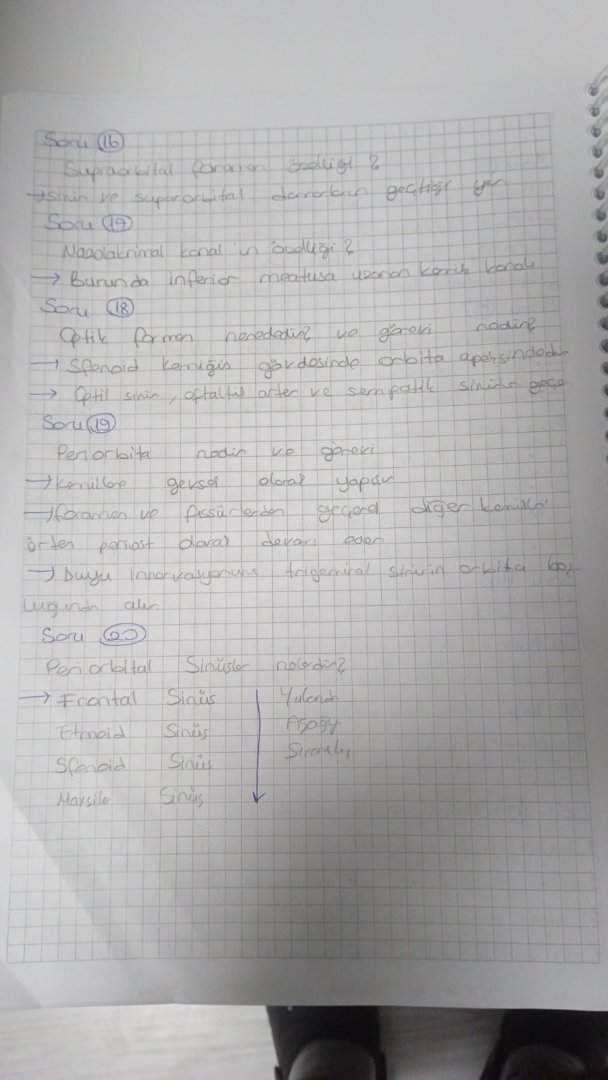 Soru 16
Supraorbital foramen özelligi ?
→ sinir ve supraorbital damarların geçtiği yer
Soru 19
Nazolakrimal kanal ın özelligi ?
→ Burunda inferior meatusa uzanan kemik kanalı
Soru 18
Optik formen nerededir? ve görevi nedir?
→ Sfenoid kemiğin gövdesinde orbita apeksindedir
→ Optik sinir, oftalmik arter ve sempatik sinirler geçer
Soru 19
Periorbita nedir ve görevi
→ Kemiklere gevşek olarak yapışır
→ foramen ve fissürlerden geçerek diğer kemikleri
örten periost olarak devam eder
→ Duyu innervasyonunu trigeminal sinirin orbita boş-
luğundan alır
Soru 20
Periorbital Sinüsler nelerdir?
→ Frontal Sinüs Yukarıdan
Etmoid Sinüs Aşağıya
Sfenoid Sinüs Sıralanış
Maksila Sinüs